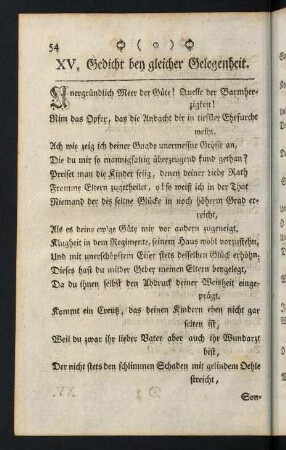 54 ( o )
XV. Gedicht bey gleicher Gelegenheit.
Unergründlich Meer der Güte! Quelle der Barmher-
zigkeit!
Nim das Opfer, das die Andacht dir in tiefster Ehrfurcht
weiht.
Ach wie zeig ich deiner Gnade unermessne Grösse an,
Die du mir so mannigfaltig überzeugend kund gethan?
Preiset man die Kinder selig, denen deiner liebe Rath
Fromme Eltern zugetheilet, o! so weiß ich in der That
Niemand der des seltne Glücke in noch höherm Grad er-
reicht,
Als es deine ew'ge Güte mir vor andern zugeneigt.
Klugheit in dem Regimente, seinem Haus wohl vorzustehn,
Und mit unerschöpftem Eifer stets desselben Glück erhöhn;
Dieses hast du milder Geber meinen Eltern beygelegt,
Da du ihnen selbst den Abdruck deiner Weisheit einge-
prägt.
Kommt ein Creutz, das deinen Kindern eben nicht gar
selten ist,
Weil du zwar ihr lieber Vater aber auch ihr Wundarzt
bist,
Der nicht stets den schlimmen Schaden mit gelindem Oehle
streicht,
Son-